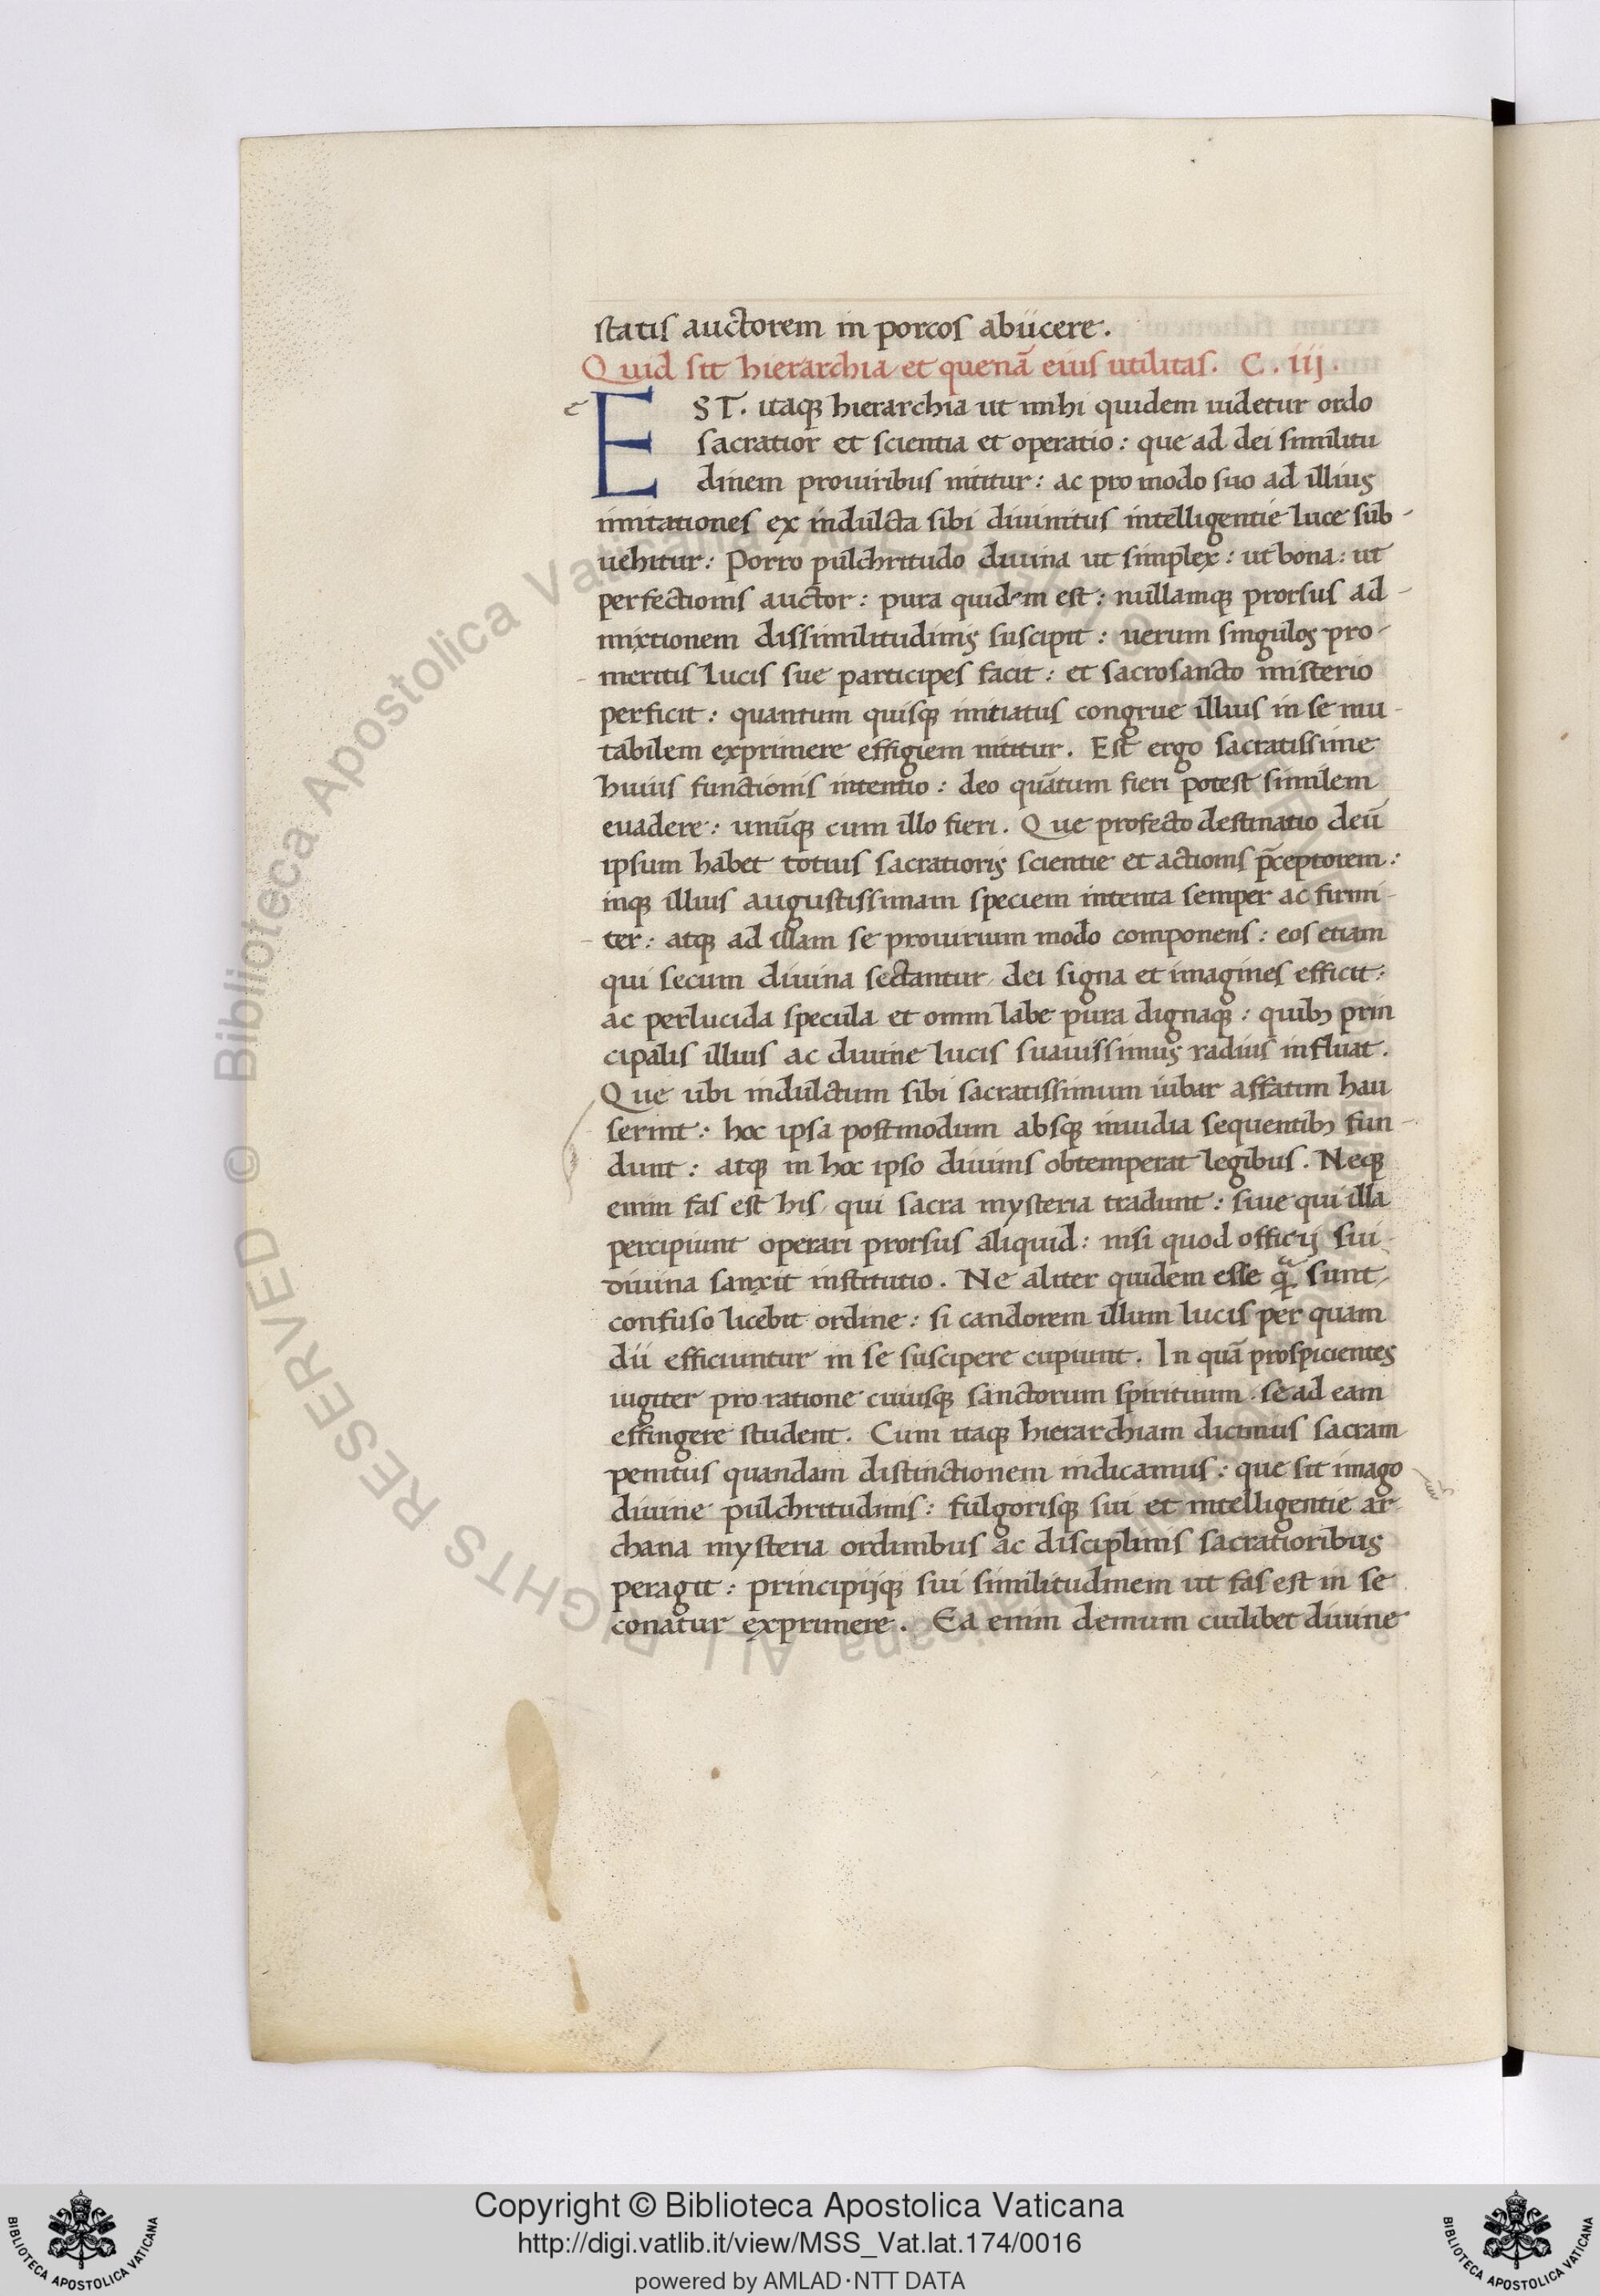 statis auctorem in porcos abiicere.
Quid sit hierarchia et quenā eius utilitas. C. iij.
EST. itaqꝫ hierarchia ut mihi quidem uidetur ordo
sacratior et scientia et operatio: que ad dei similitu
dinem prouiribus nititur: ac pro modo suo ad illius
imitationes ex indulcta sibi diuinitus intelligentie luce sub-
uehitur: Porro pulchritudo diuina ut simplex: ut bona: ut
perfectionis auctor: pura quidem est: nullamqꝫ prorsus ad-
mixtionem dissimilitudinis suscipit: uerum singulos pro-
meritis lucis sue participes facit: et sacrosancto misterio
perficit: quantum quisqꝫ initiatus congrue illius in se mu-
tabilem exprimere effigiem nititur. Est ergo sacratissime
huius functionis intentio: deo quātum fieri potest similem
euadere: unūqꝫ cum illo fieri. Que profecto destinatio deū
ipsum habet totius sacratioris scientie et actionis p̄ceptorem:
inqꝫ illius augustissimam speciem intenta semper ac firmi-
ter: atqꝫ ad illam se prouirium modo componens: eos etiam
qui secum diuina sectantur dei signa et imagines efficit:
ac perlucida specula et omni labe pura dignaqꝫ: quibꝫ prin
cipalis illius ac diuine lucis suauissimus radius influat.
Que ubi indulctum sibi sacratissimum iubar affatim hau
serint: hoc ipsa postmodum absqꝫ inuidia sequentibꝫ fun-
dunt: atqꝫ in hoc ipso diuinis obtemperat legibus. Neqꝫ
enim fas est his qui sacra mysteria tradunt: siue qui illa
percipiunt operari prorsus aliquid: nisi quod officij sui
diuina sanxit institutio. Ne aliter quidem esse q̃ sunt
confuso licebit ordine: si candorem illum lucis per quam
dii efficiuntur in se suscipere cupiunt. In quā prospicientes
iugiter pro ratione cuiusqꝫ sanctorum spirituum se ad eam
effingere student. Cum itaqꝫ hierarchiam dicimus sacram
penitus quandam distinctionem indicamus: que sit imago
diuine pulchritudinis: fulgorisqꝫ sui et intelligentie ar
chana mysteria ordinibus ac disciplinis sacratioribus
peragit: principijqꝫ sui similitudinem ut fas est in se
conatur exprimere. Ea enim demum cuilibet diuine
© Biblioteca Apostolica Vaticana ALL RIGHTS RESERVED
Copyright © Biblioteca Apostolica Vaticana
http://digi.vatlib.it/view/MSS_Vat.lat.174/0016
powered by AMLAD·NTT DATA
BIBLIOTECA APOSTOLICA VATICANA
BIBLIOTECA APOSTOLICA VATICANA